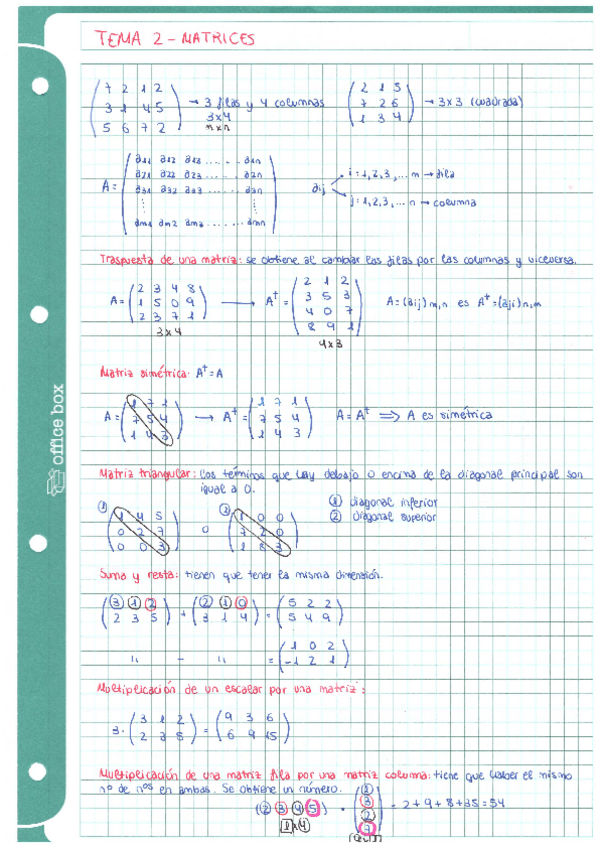 TEMA 2 - MATRICES
7 2 1 2
3 1 4 5 → 3 filas y 4 columnas
5 6 7 2
3x4
mxn
2 1 5
7 2 6 → 3x3 (cuadrada)
1 3 4
A = a11 a12 a13 ..... a1n
a21 a22 a23 ..... a2n
a31 a32 a33 ..... a3n
am1 am2 am3 ...... amn
aij
i = 1, 2, 3, ... m → fila
j = 1, 2, 3, ... n → columna
Traspuesta de una matriz: se obtiene al cambiar las filas por las columnas y viceversa.
A = 2 3 4 8
1 5 0 9
2 3 7 1
3x4
→ At = 2 1 2
3 5 3
4 0 7
8 9 1
4x3
A = (aij) m,n es At = (aji) n,m
Matriz simétrica: At = A
A = 1 7 1
7 5 4
1 4 3
→ At = 1 7 1
7 5 4
1 4 3
A = At ⟹ A es simétrica
office box
Matriz triangular: Los términos que hay debajo o encima de la diagonal principal son
igual a 0.
① diagonal inferior
② diagonal superior
① 1 4 5
0 2 7
0 0 3
o
② 1 0 0
7 2 0
1 8 3
Suma y resta: tienen que tener la misma dimensión.
(3 1 2) + (2 1 0) = (5 2 2)
(2 3 5) (3 1 4) (5 4 9)
" - " = (1 0 2)
(-1 2 1)
Multiplicación de un escalar por una matriz:
3 · (3 1 2) = (9 3 6)
(2 3 5) (6 9 15)
Multiplicación de una matriz fila por una matriz columna: tiene que haber el mismo
nº de nos en ambas. Se obtiene un número.
(2 3 4 5) · (1 3 2 7) = 2 + 9 + 8 + 35 = 54
1x4